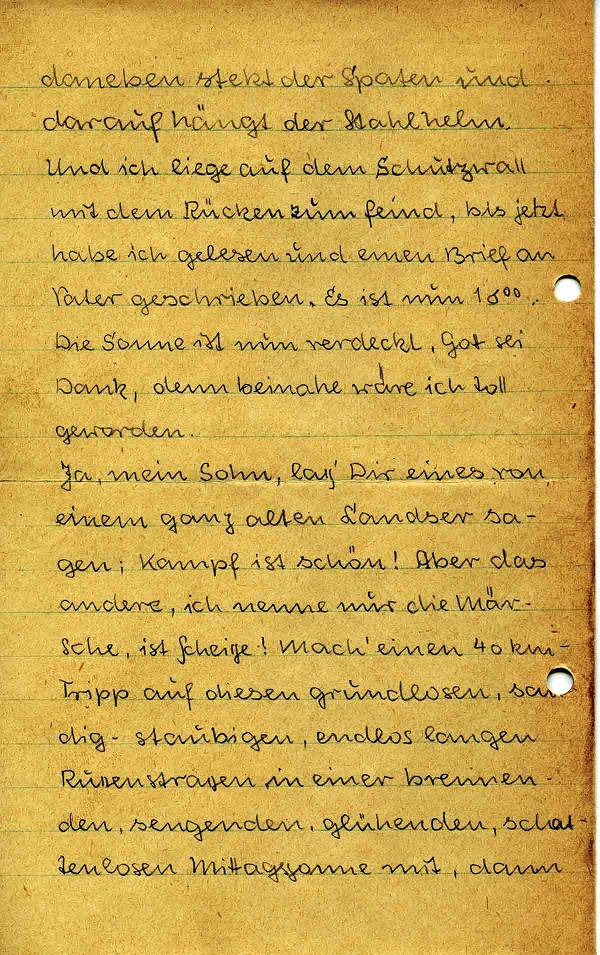 daneben stekt der Spaten und
darauf hängt der Stahlhelm.
Und ich liege auf dem Schutzwall
mit dem Rücken zum feind, bis jetzt
habe ich gelesen und einen Brief an
Vater geschrieben. Es ist nun 15⁰⁰.
Die Sonne ist nun verdeckt, Got sei
Dank, denn beinahe wäre ich toll
geworden.
Ja, mein Sohn, laß' Dir eines von
einem ganz alten Landser sa-
gen; Kampf ist schön! Aber das
andere, ich nenne nur die Mär-
sche, ist scheiße! Mach' einen 40 km-
Tripp auf diesen grundlosen, san
dig- staubigen, endlos langen
Rußenstraßen in einer brennen-
den, sengenden, glühenden, schat-
tenlosen Mittagssonne mit, dann